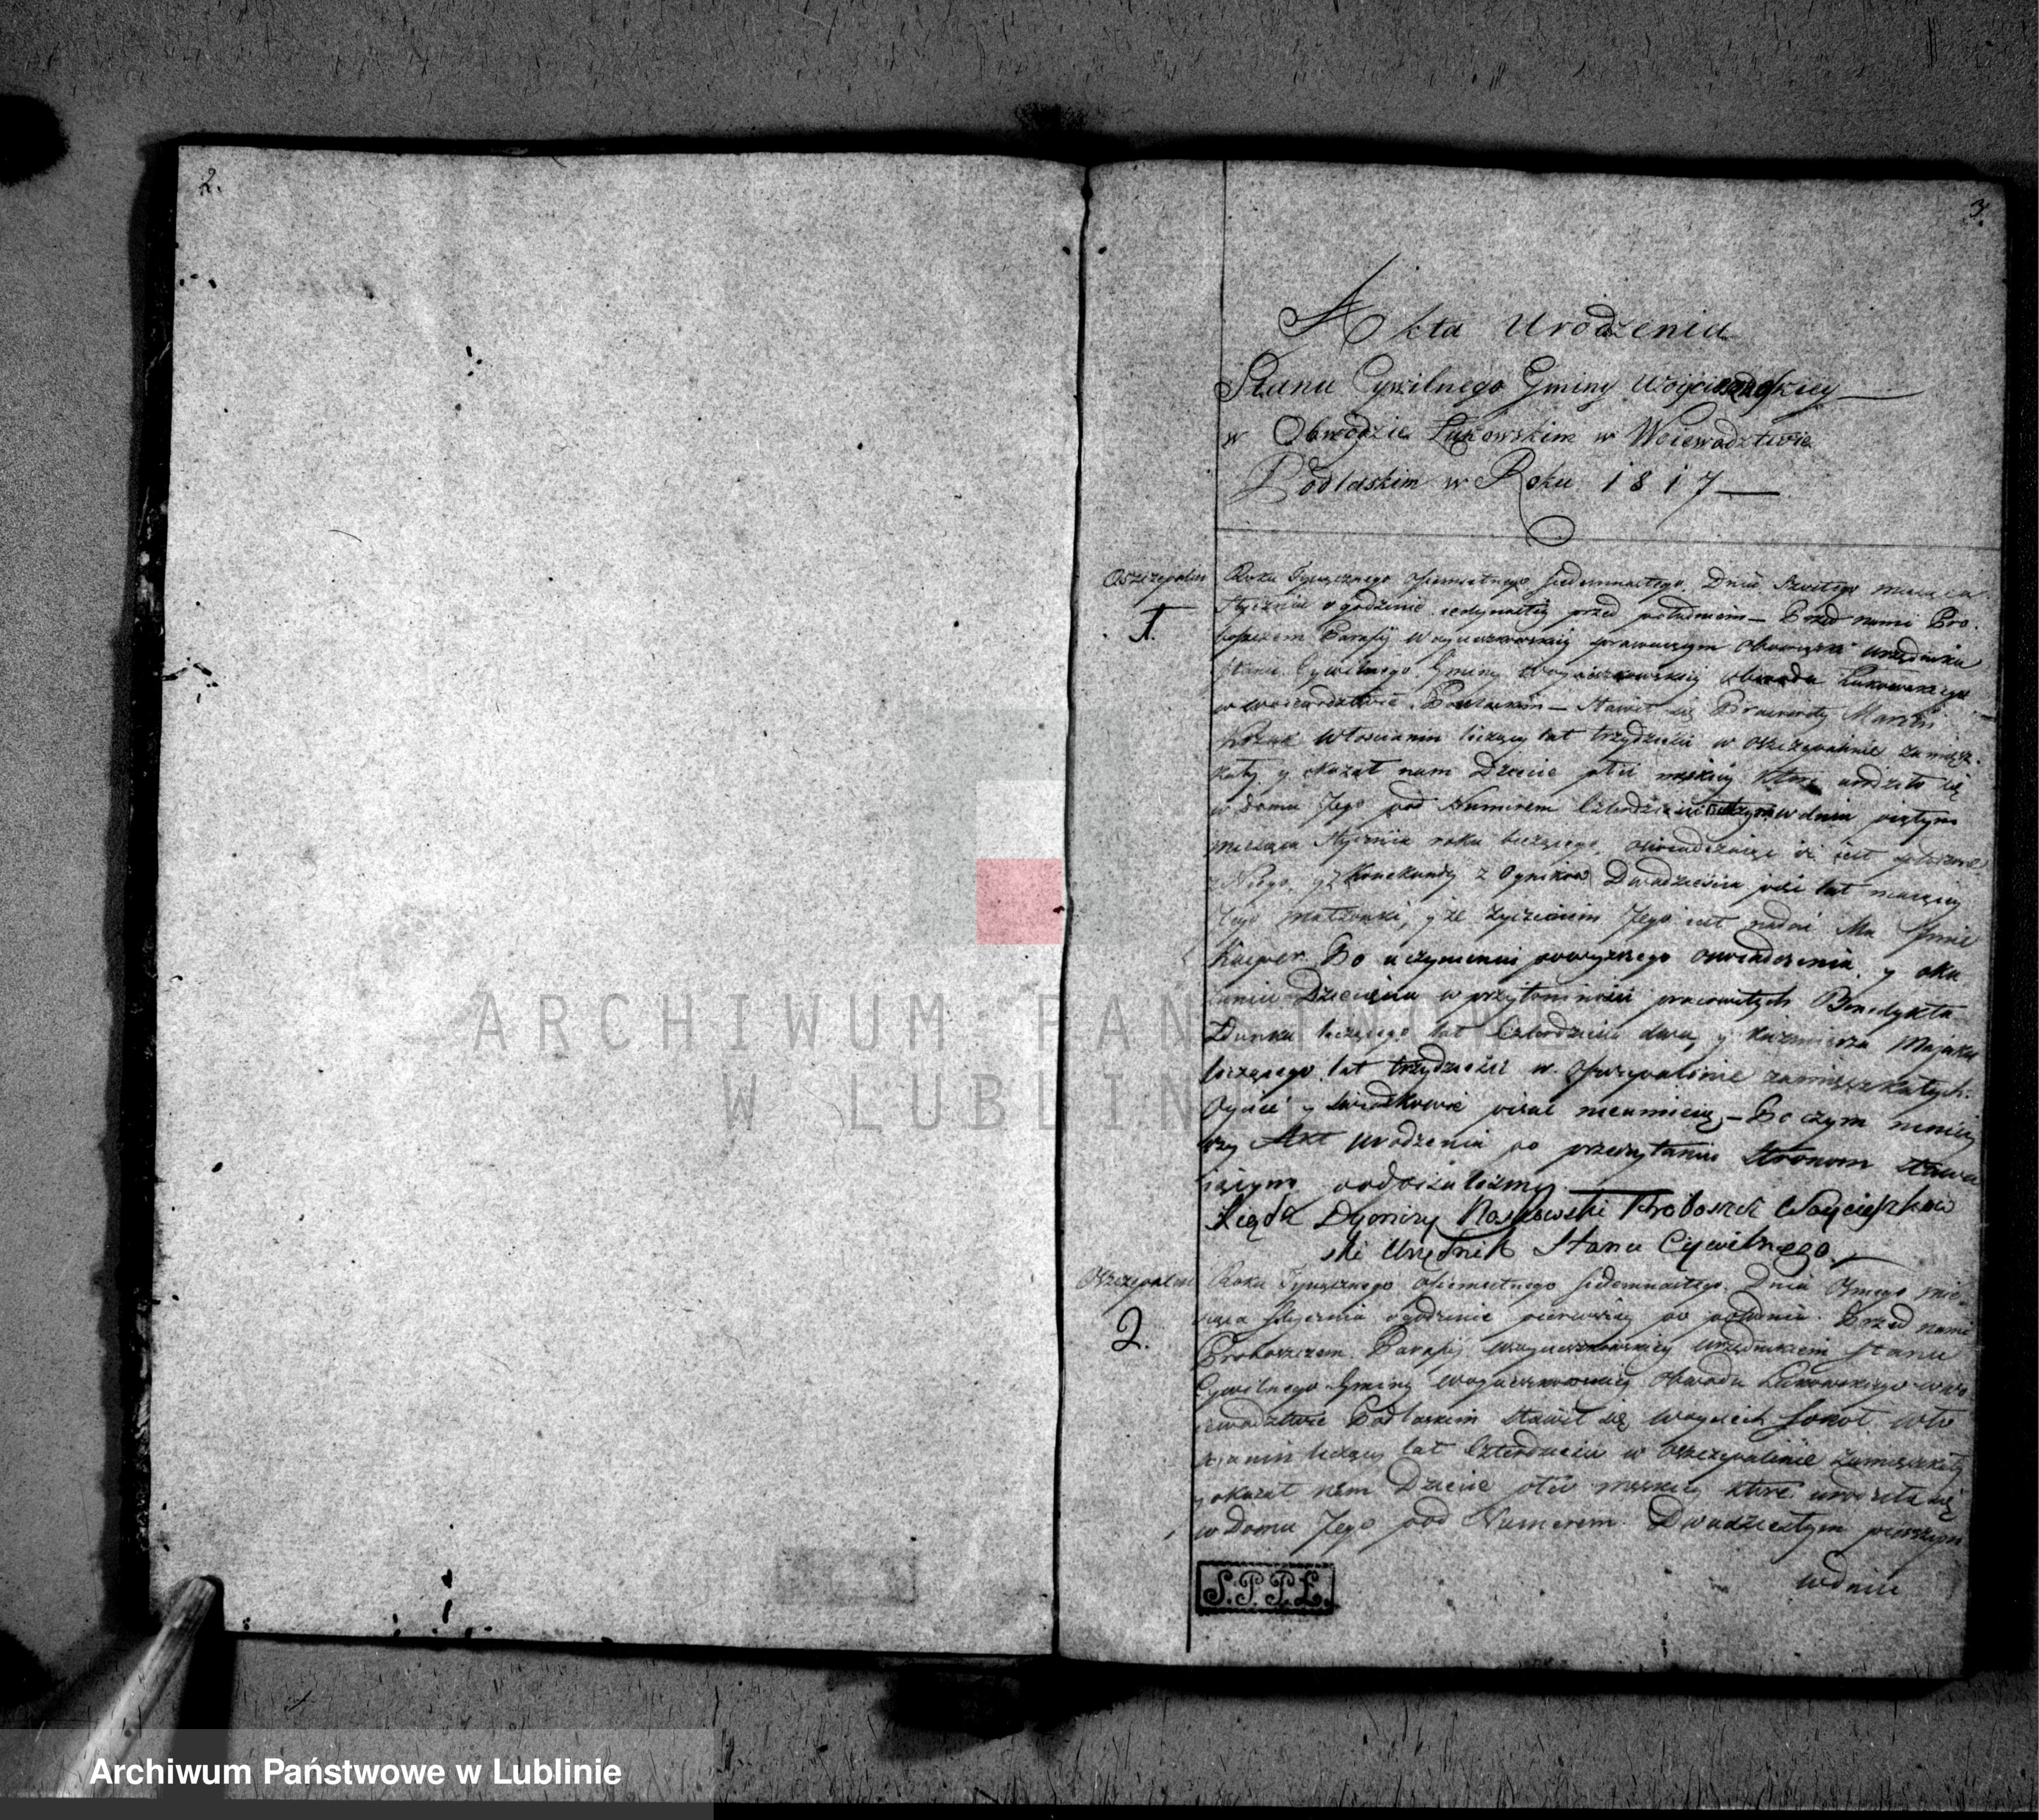 2.
3.
Akta Urodzenia
Stanu Cywilnego Gminy
w Obwodzie Łukowskim w Woiewodztwie
Podlaskim w Roku 1817
Oszczepalin
1.
Roku Tysiącznego Osiemsetnego Siedemnastego. Dnia Szostego miesiąca
Stycznia o godzinie iedynastey przed południem – Przed nami Pro-
boszczem Parafij Woycieszkowskiey sprawuiącym obowiązki urzędnika
Stanu Cywilnego Gminy Woycieszkowskiey obwodu Łukowskiego
w woiewodztwie Podlaskim – Stawił się Pracowity Marcin
Włoscianin liczący lat trzydzieści w Oszczepalinie zamiesz-
kały y okazał nam Dziecie płci męskiey które urodziło się
w domu Jego pod Numerem w dniu piątym
miesiąca Stycznia roku bieżącego, oświadczaiąc iż iest spłodzone
z Niego, y Kunekundy z Ognikow Dwadzieścia lat maiącey
Jego małżonki, y że życzeniem Jego iest nadać Mu Jmie
Kacper Po uczynieniu powyższego oswiadczenia y oka
zaniu Dziecięcia w przytomności pracowitych Benedykta
liczącego lat Czterdzieści dwa, y Kazimierza Majaka
liczącego lat trzydzieści w Oszczepalinie zamieszkałych.
Oyciec y świadkowie pisać nieumieią, – Po czym niniey
szy Akt urodzenia po przeczytaniu Stronom stawa
iącym podpisaliśmy.
Xiądz Dyonizy Proboszcz Woycieszkow
ski Urzędnik Stanu Cywilnego.
Oszczepalin
2.
Roku Tysiącznego Osiemsetnego Siedemnastego. Dnia Osmego mie-
siąca Stycznia o godzinie pierwszey po południu. Przed nami
Proboszczem Parafij Woycieszkowskiey urzędnikiem Stanu
Cywilnego Gminy Woycieszkowskiey Obwodu Łukowskiego w wo
iewodztwie Podlaskim stawił się Woyciech Sokoł wło
scianin liczący lat Czterdzieści w Oszczepalinie zamieszkały
y okazał nam Dziecie płci męskiey które urodziło się
w Domu Jego pod Numerem Dwudziestym pierwszym
w dniu
S.P.P.L.
ARCHIWUM PAŃSTWOWE
W LUBLINIE
Archiwum Państwowe w Lublinie